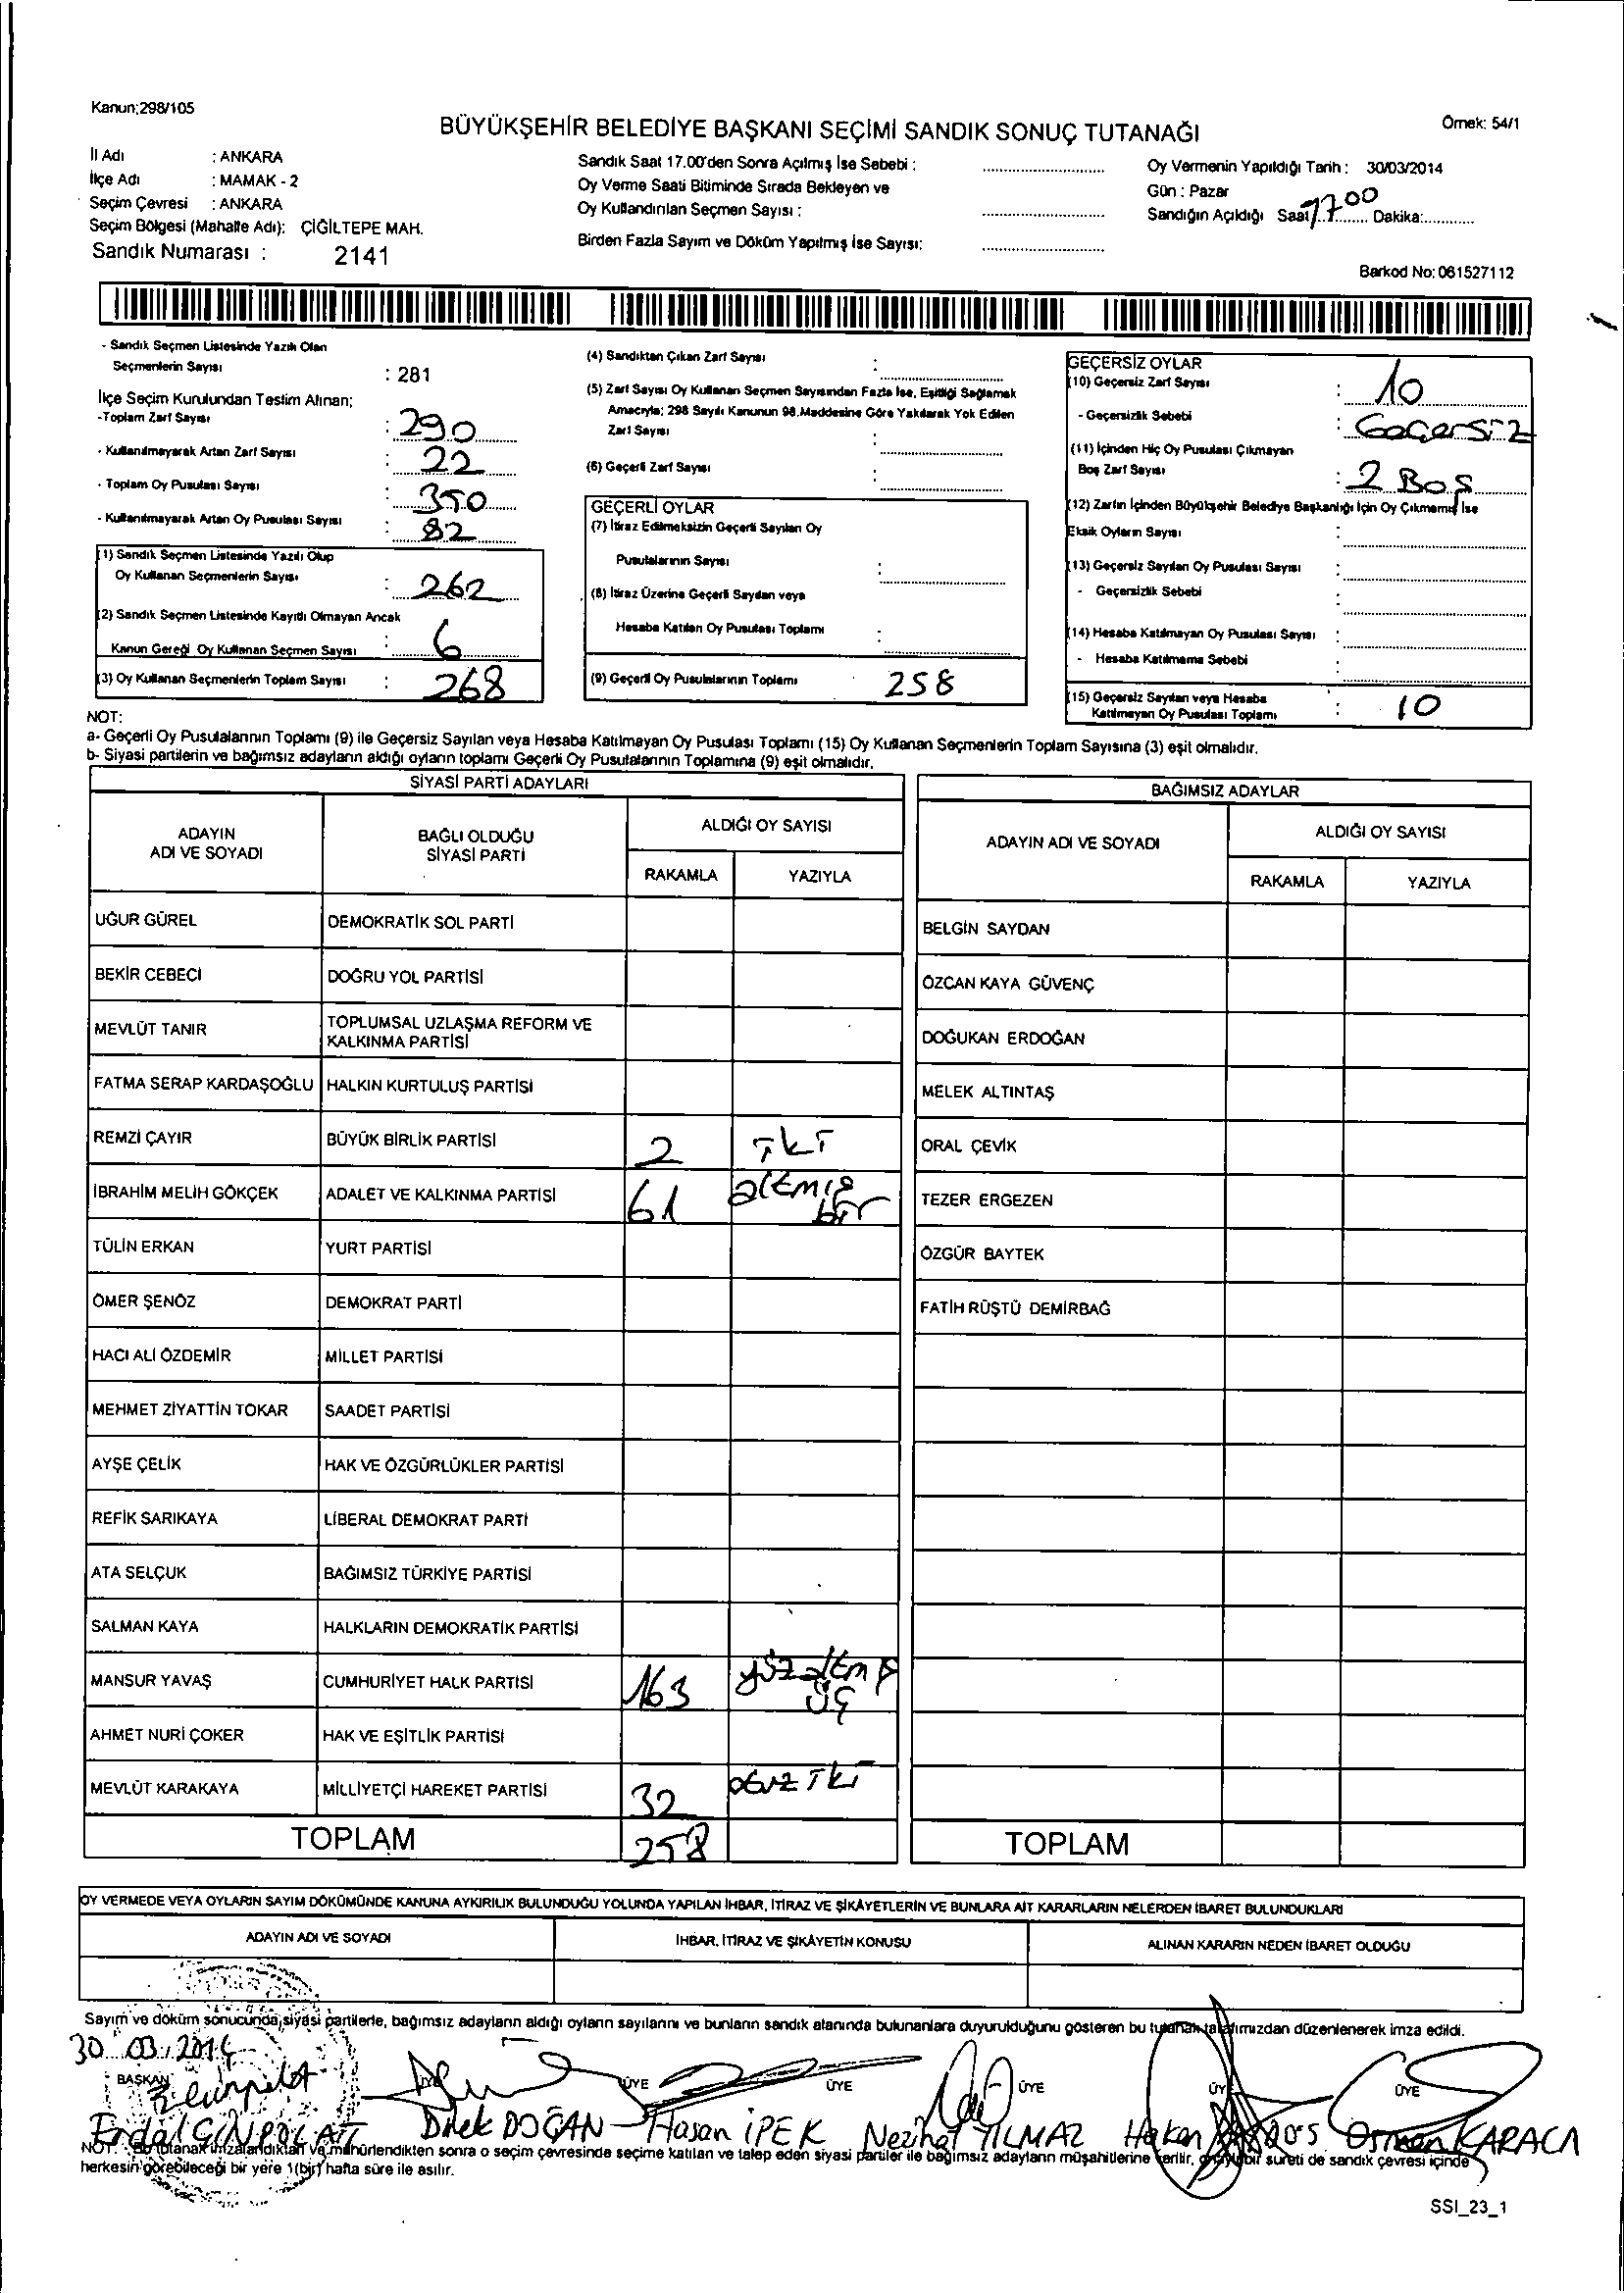 Kanun;298/105
BÜYÜKŞEHİR BELEDİYE BAŞKANI SEÇİMİ SANDIK SONUÇ TUTANAĞI
Örnek: 54/1
İl Adı : ANKARA
İlçe Adı : MAMAK - 2
Seçim Çevresi : ANKARA
Seçim Bölgesi (Mahalle Adı): ÇİĞİLTEPE MAH.
Sandık Numarası : 2141
Sandık Saat 17.00'den Sonra Açılmış İse Sebebi :
Oy Verme Saati Bitiminde Sırada Bekleyen ve
Oy Kullandırılan Seçmen Sayısı :
Birden Fazla Sayım ve Döküm Yapılmış İse Sayısı:
Oy Vermenin Yapıldığı Tarih : 30/03/2014
Gün : Pazar
Sandığın Açıldığı Saat 1700 Dakika:
Barkod No: 061527112
- Sandık Seçmen Listesinde Yazılı Olan
Seçmenlerin Sayısı : 281
İlçe Seçim Kurulundan Teslim Alınan;
-Toplam Zarf Sayısı : 290
- Kullanılmayarak Artan Zarf Sayısı : 22
- Toplam Oy Pusulası Sayısı : 350
- Kullanılmayarak Artan Oy Pusulası Sayısı : 82
(1) Sandık Seçmen Listesinde Yazılı Olup
Oy Kullanan Seçmenlerin Sayısı : 262
(2) Sandık Seçmen Listesinde Kayıtlı Olmayan Ancak
Kanun Gereği Oy Kullanan Seçmen Sayısı : 6
(3) Oy Kullanan Seçmenlerin Toplam Sayısı : 268
(4) Sandıktan Çıkan Zarf Sayısı :
(5) Zarf Sayısı Oy Kullanan Seçmen Sayısından Fazla İse, Eşitliği Sağlamak
Amacıyla; 298 Sayılı Kanunun 98.Maddesine Göre Yakılarak Yok Edilen
Zarf Sayısı :
(6) Geçerli Zarf Sayısı :
GEÇERLİ OYLAR
(7) İtiraz Edilmeksizin Geçerli Sayılan Oy
Pusulalarının Sayısı :
(8) İtiraz Üzerine Geçerli Sayılan veya
Hesaba Katılan Oy Pusulası Toplamı :
(9) Geçerli Oy Pusulalarının Toplamı : 258
GEÇERSİZ OYLAR
(10) Geçersiz Zarf Sayısı : 10
- Geçersizlik Sebebi : Geçersiz
(11) İçinden Hiç Oy Pusulası Çıkmayan
Boş Zarf Sayısı : 2 Boş
(12) Zarfın İçinden Büyükşehir Belediye Başkanlığı İçin Oy Çıkmamış İse
Eksik Oyların Sayısı :
(13) Geçersiz Sayılan Oy Pusulası Sayısı :
- Geçersizlik Sebebi :
(14) Hesaba Katılmayan Oy Pusulası Sayısı :
- Hesaba Katılmama Sebebi :
(15) Geçersiz Sayılan veya Hesaba
Katılmayan Oy Pusulası Toplamı : 10
NOT:
a- Geçerli Oy Pusulalarının Toplamı (9) ile Geçersiz Sayılan veya Hesaba Katılmayan Oy Pusulası Toplamı (15) Oy Kullanan Seçmenlerin Toplam Sayısına (3) eşit olmalıdır.
b- Siyasi partilerin ve bağımsız adayların aldığı oyların toplamı Geçerli Oy Pusulalarının Toplamına (9) eşit olmalıdır.
SİYASİ PARTİ ADAYLARI
ADAYIN ADI VE SOYADI
BAĞLI OLDUĞU SİYASİ PARTİ
ALDIĞI OY SAYISI
RAKAMLA YAZIYLA
UĞUR GÜREL DEMOKRATİK SOL PARTİ
BEKİR CEBECİ DOĞRU YOL PARTİSİ
MEVLÜT TANIR TOPLUMSAL UZLAŞMA REFORM VE KALKINMA PARTİSİ
FATMA SERAP KARDAŞOĞLU HALKIN KURTULUŞ PARTİSİ
REMZİ ÇAYIR BÜYÜK BİRLİK PARTİSİ 2 İkİ
İBRAHİM MELİH GÖKÇEK ADALET VE KALKINMA PARTİSİ 61 altmış bir
TÜLİN ERKAN YURT PARTİSİ
ÖMER ŞENÖZ DEMOKRAT PARTİ
HACI ALİ ÖZDEMİR MİLLET PARTİSİ
MEHMET ZİYATTİN TOKAR SAADET PARTİSİ
AYŞE ÇELİK HAK VE ÖZGÜRLÜKLER PARTİSİ
REFİK SARIKAYA LİBERAL DEMOKRAT PARTİ
ATA SELÇUK BAĞIMSIZ TÜRKİYE PARTİSİ
SALMAN KAYA HALKLARIN DEMOKRATİK PARTİSİ
MANSUR YAVAŞ CUMHURİYET HALK PARTİSİ 163 yüzaltmış üç
AHMET NURİ ÇOKER HAK VE EŞİTLİK PARTİSİ
MEVLÜT KARAKAYA MİLLİYETÇİ HAREKET PARTİSİ 32 otuz İki
TOPLAM 258
BAĞIMSIZ ADAYLAR
ADAYIN ADI VE SOYADI
ALDIĞI OY SAYISI
RAKAMLA YAZIYLA
BELGİN SAYDAN
ÖZCAN KAYA GÜVENÇ
DOĞUKAN ERDOĞAN
MELEK ALTINTAŞ
ORAL ÇEVİK
TEZER ERGEZEN
ÖZGÜR BAYTEK
FATİH RÜŞTÜ DEMİRBAĞ
TOPLAM
OY VERMEDE VEYA OYLARIN SAYIM DÖKÜMÜNDE KANUNA AYKIRILIK BULUNDUĞU YOLUNDA YAPILAN İHBAR, İTİRAZ VE ŞİKÂYETLERİN VE BUNLARA AİT KARARLARIN NELERDEN İBARET BULUNDUKLARI
ADAYIN ADI VE SOYADI
İHBAR, İTİRAZ VE ŞİKÂYETİN KONUSU
ALINAN KARARIN NEDEN İBARET OLDUĞU
Sayım ve döküm sonucunda, siyasi partilerle, bağımsız adayların aldığı oyların sayılarını ve bunların sandık alanında bulunanlara duyurulduğunu gösteren bu tutanak tarafımızdan düzenlenerek imza edildi.
30.03.2014
BAŞKAN ÜYE ÜYE ÜYE ÜYE ÜYE ÜYE
Erdal Dilek DOĞAN Hasan İPEK Nezihat YILMAZ Hakan Osman KARACA
NOT: - Bu tutanak imzalandıktan ve mühürlendikten sonra o seçim çevresinde seçime katılan ve talep eden siyasi partiler ile bağımsız adayların müşahitlerine verilir, onaylı bir sureti de sandık çevresi içinde
herkesin görebileceği bir yere 1(bir) hafta süre ile asılır.
SSI_23_1